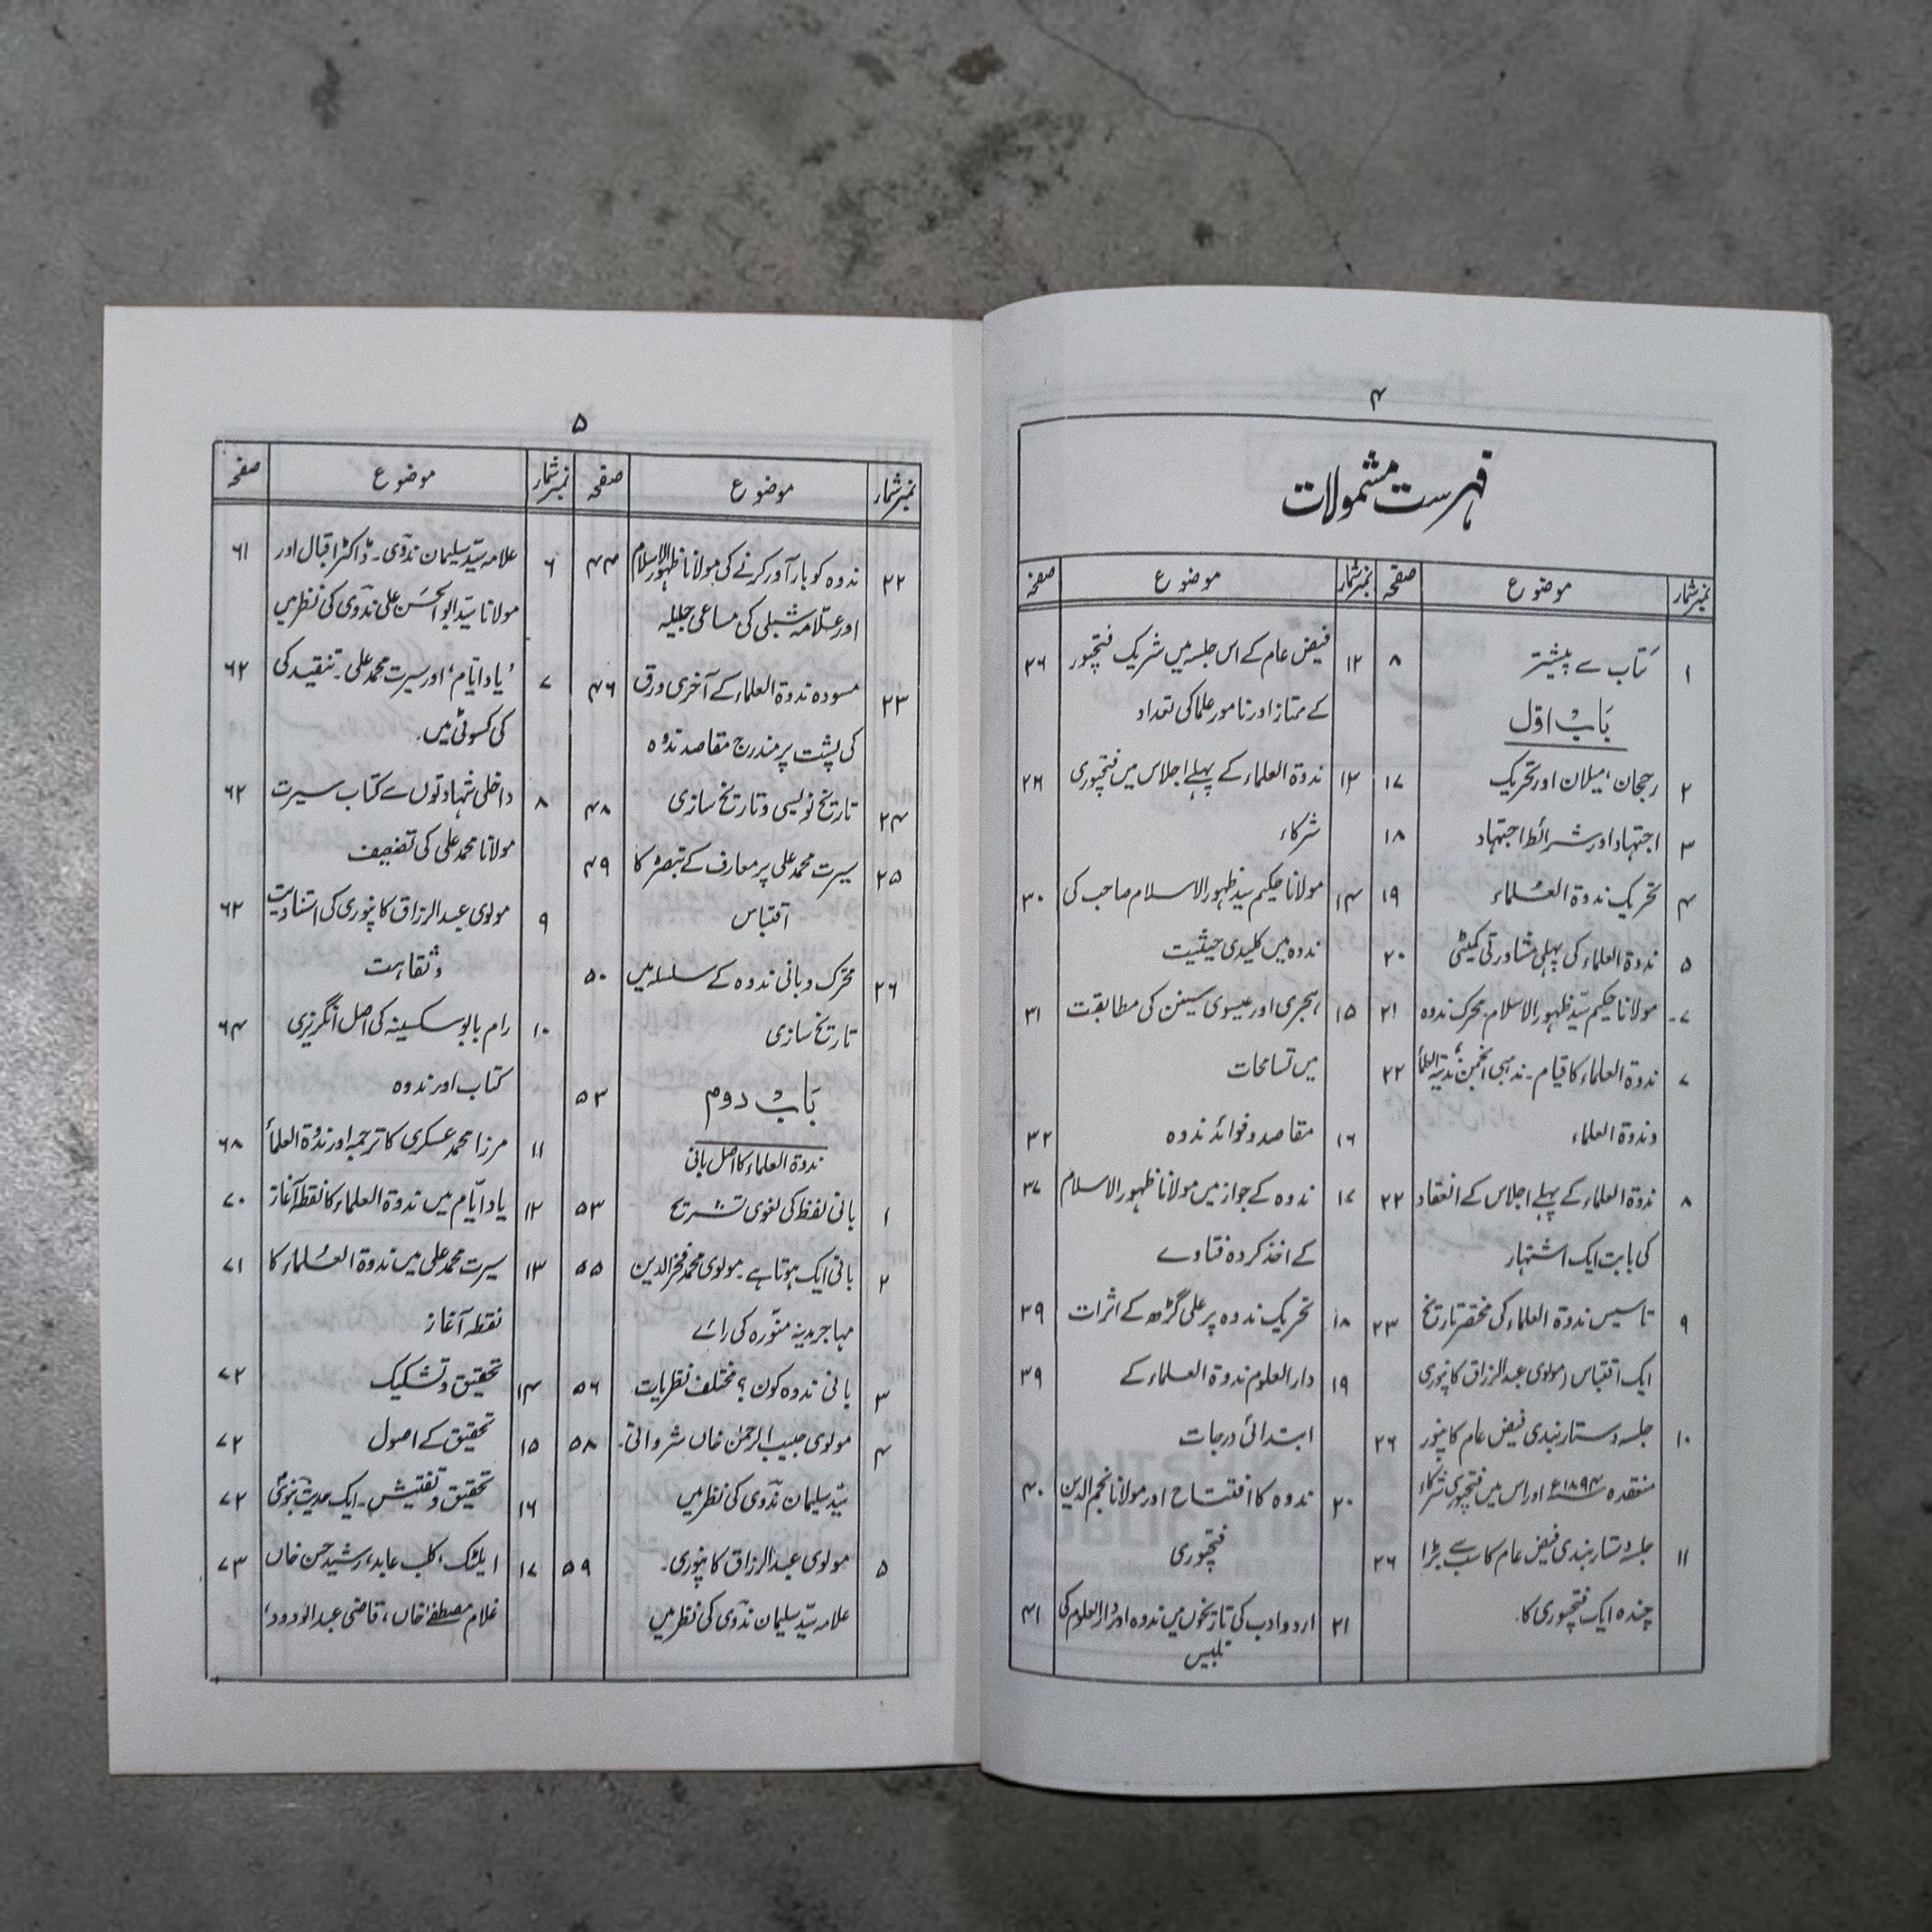 ۴
فہرست مشمولات
نمبر شمار موضوع صفحہ
۱ کتاب سے پیشتر ۸
باب اول
۲ رجحان، میلان اور تحریک ۱۷
۳ اجتہاد اور شرائط اجتہاد ۱۸
۴ تحریک ندوۃ العلماء ۱۹
۵ ندوۃ العلماء کی پہلی مشاورتی کمیٹی ۲۰
مولانا حکیم سید ظہور الاسلام۔ محرک ندوہ ۲۱
۷ ندوۃ العلماء کا قیام۔ مذہبی انجمن ۲۲
وندوۃ العلماء
۸ ندوۃ العلماء کے پہلے اجلاس کے انعقاد ۲۲
کی بابت ایک اشتہار
۹ تاسیس ندوۃ العلماء کی مختصر تاریخ ۲۳
ایک اقتباس (مولوی عبدالرزاق کانپوری
۱۰ جلسہ دستار بندی فیض عام کانپور ۲۶
منعقدہ ۱۸۹۴ء اور اس میں فتحپوری شرکاء
۱۱ جلسہ دستار بندی فیض عام کا سب سے بڑا ۲۶
چندہ ایک فتحپوری کا۔
نمبر شمار موضوع صفحہ
۱۲ فیض عام کے اس جلسہ میں شریک فتحپور ۲۶
کے ممتاز اور نامور علما کی تعداد
۱۳ ندوۃ العلماء کے پہلے اجلاس میں فتحپوری ۲۸
شرکاء
۱۴ مولانا حکیم سید ظہور الاسلام صاحب کی ۳۰
ندوہ میں کلیدی حیثیت
۱۵ ہجری اور عیسوی سنین کی مطابقت ۳۱
میں تسامحات
۱۶ مقاصد و فوائد ندوہ ۳۲
۱۷ ندوہ کے جواز میں مولانا ظہور الاسلام ۳۷
کے اخذ کردہ فتاوے
۱۸ تحریک ندوہ پر علی گڑھ کے اثرات ۳۹
۱۹ دارالعلوم ندوۃ العلماء کے ۳۹
ابتدائی درجات
۲۰ ندوہ کا افتتاح اور مولانا نجم الدین ۴۰
فتحپوری
۲۱ اردو ادب کی تاریخوں میں ندوہ اور دارالعلوم کی ۴۱
تلبیس
۵
نمبر شمار موضوع صفحہ
۲۲ ندوہ کو بار آور کرنے کی مولانا ظہور الاسلام ۴۴
اور علامہ شبلی کی مساعی جلیلہ
۲۳ مسودہ ندوۃ العلماء کے آخری ورق ۴۶
کی پشت پر مندرج مقاصد ندوہ
۲۴ تاریخ نویسی و تاریخ سازی ۴۸
۲۵ سیرت محمد علی پر معارف کے تبصرہ کا ۴۹
اقتباس
۲۶ محرک و بانی ندوہ کے سلسلہ میں ۵۰
تاریخ سازی
باب دوم ۵۳
ندوۃ العلماء کا اصل بانی
۱ بانی لفظ کی لغوی تشریح ۵۳
۲ بانی ایک ہوتا ہے۔ مولوی محمد فخرالدین ۵۵
مہاجر مدینہ منورہ کی رائے
۳ بانی ندوہ کون؟ مختلف نظریات۔ ۵۶
۴ مولوی حبیب الرحمٰن خاں شروانی۔ ۵۸
سید سلیمان ندوی کی نظر میں
۵ مولوی عبدالرزاق کانپوری۔ ۵۹
علامہ سید سلیمان ندوی کی نظر میں
نمبر شمار موضوع صفحہ
۶ علامہ سید سلیمان ندوی۔ ڈاکٹر اقبال اور ۶۱
مولانا سید ابوالحسن علی ندوی کی نظر میں
۷ ’یاد ایام‘ اور سیرت محمد علی۔ تنقید کی ۶۲
کی کسوٹی میں۔
۸ داخلی شہادتوں سے کتاب سیرت ۶۲
مولانا محمد علی کی تضعیف
۹ مولوی عبدالرزاق کانپوری کی اسنادیت ۶۳
و ثقاہت
۱۰ رام بابو سکسینہ کی اصل انگریزی ۶۴
کتاب اور ندوہ
۱۱ مرزا محمد عسکری کا ترجمہ اور ندوۃ العلماء ۶۸
۱۲ یاد ایام میں ندوۃ العلماء کا نقطہ آغاز ۷۰
۱۳ سیرت محمد علی میں ندوۃ العلماء کا ۷۱
نقطہ آغاز
۱۴ تحقیق و تشکیک ۷۲
۱۵ تحقیق کے اصول ۷۲
۱۶ تحقیق و تفتیش۔ ایک حدیث نبوی ۷۲
۱۷ ایلٹ، کلب عابد، رشید حسن خاں ۷۳
غلام مصطفےٰ خاں، قاضی عبدالودود،